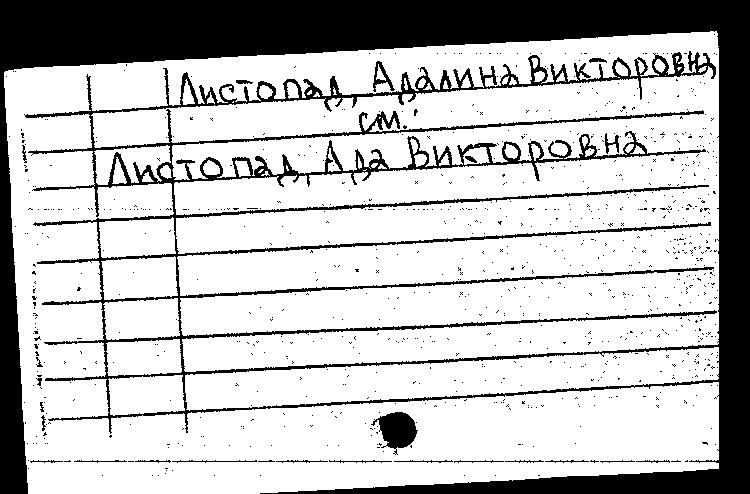 Листопад, Адалина Викторовна
см.:
Листопад, Ада Викторовна